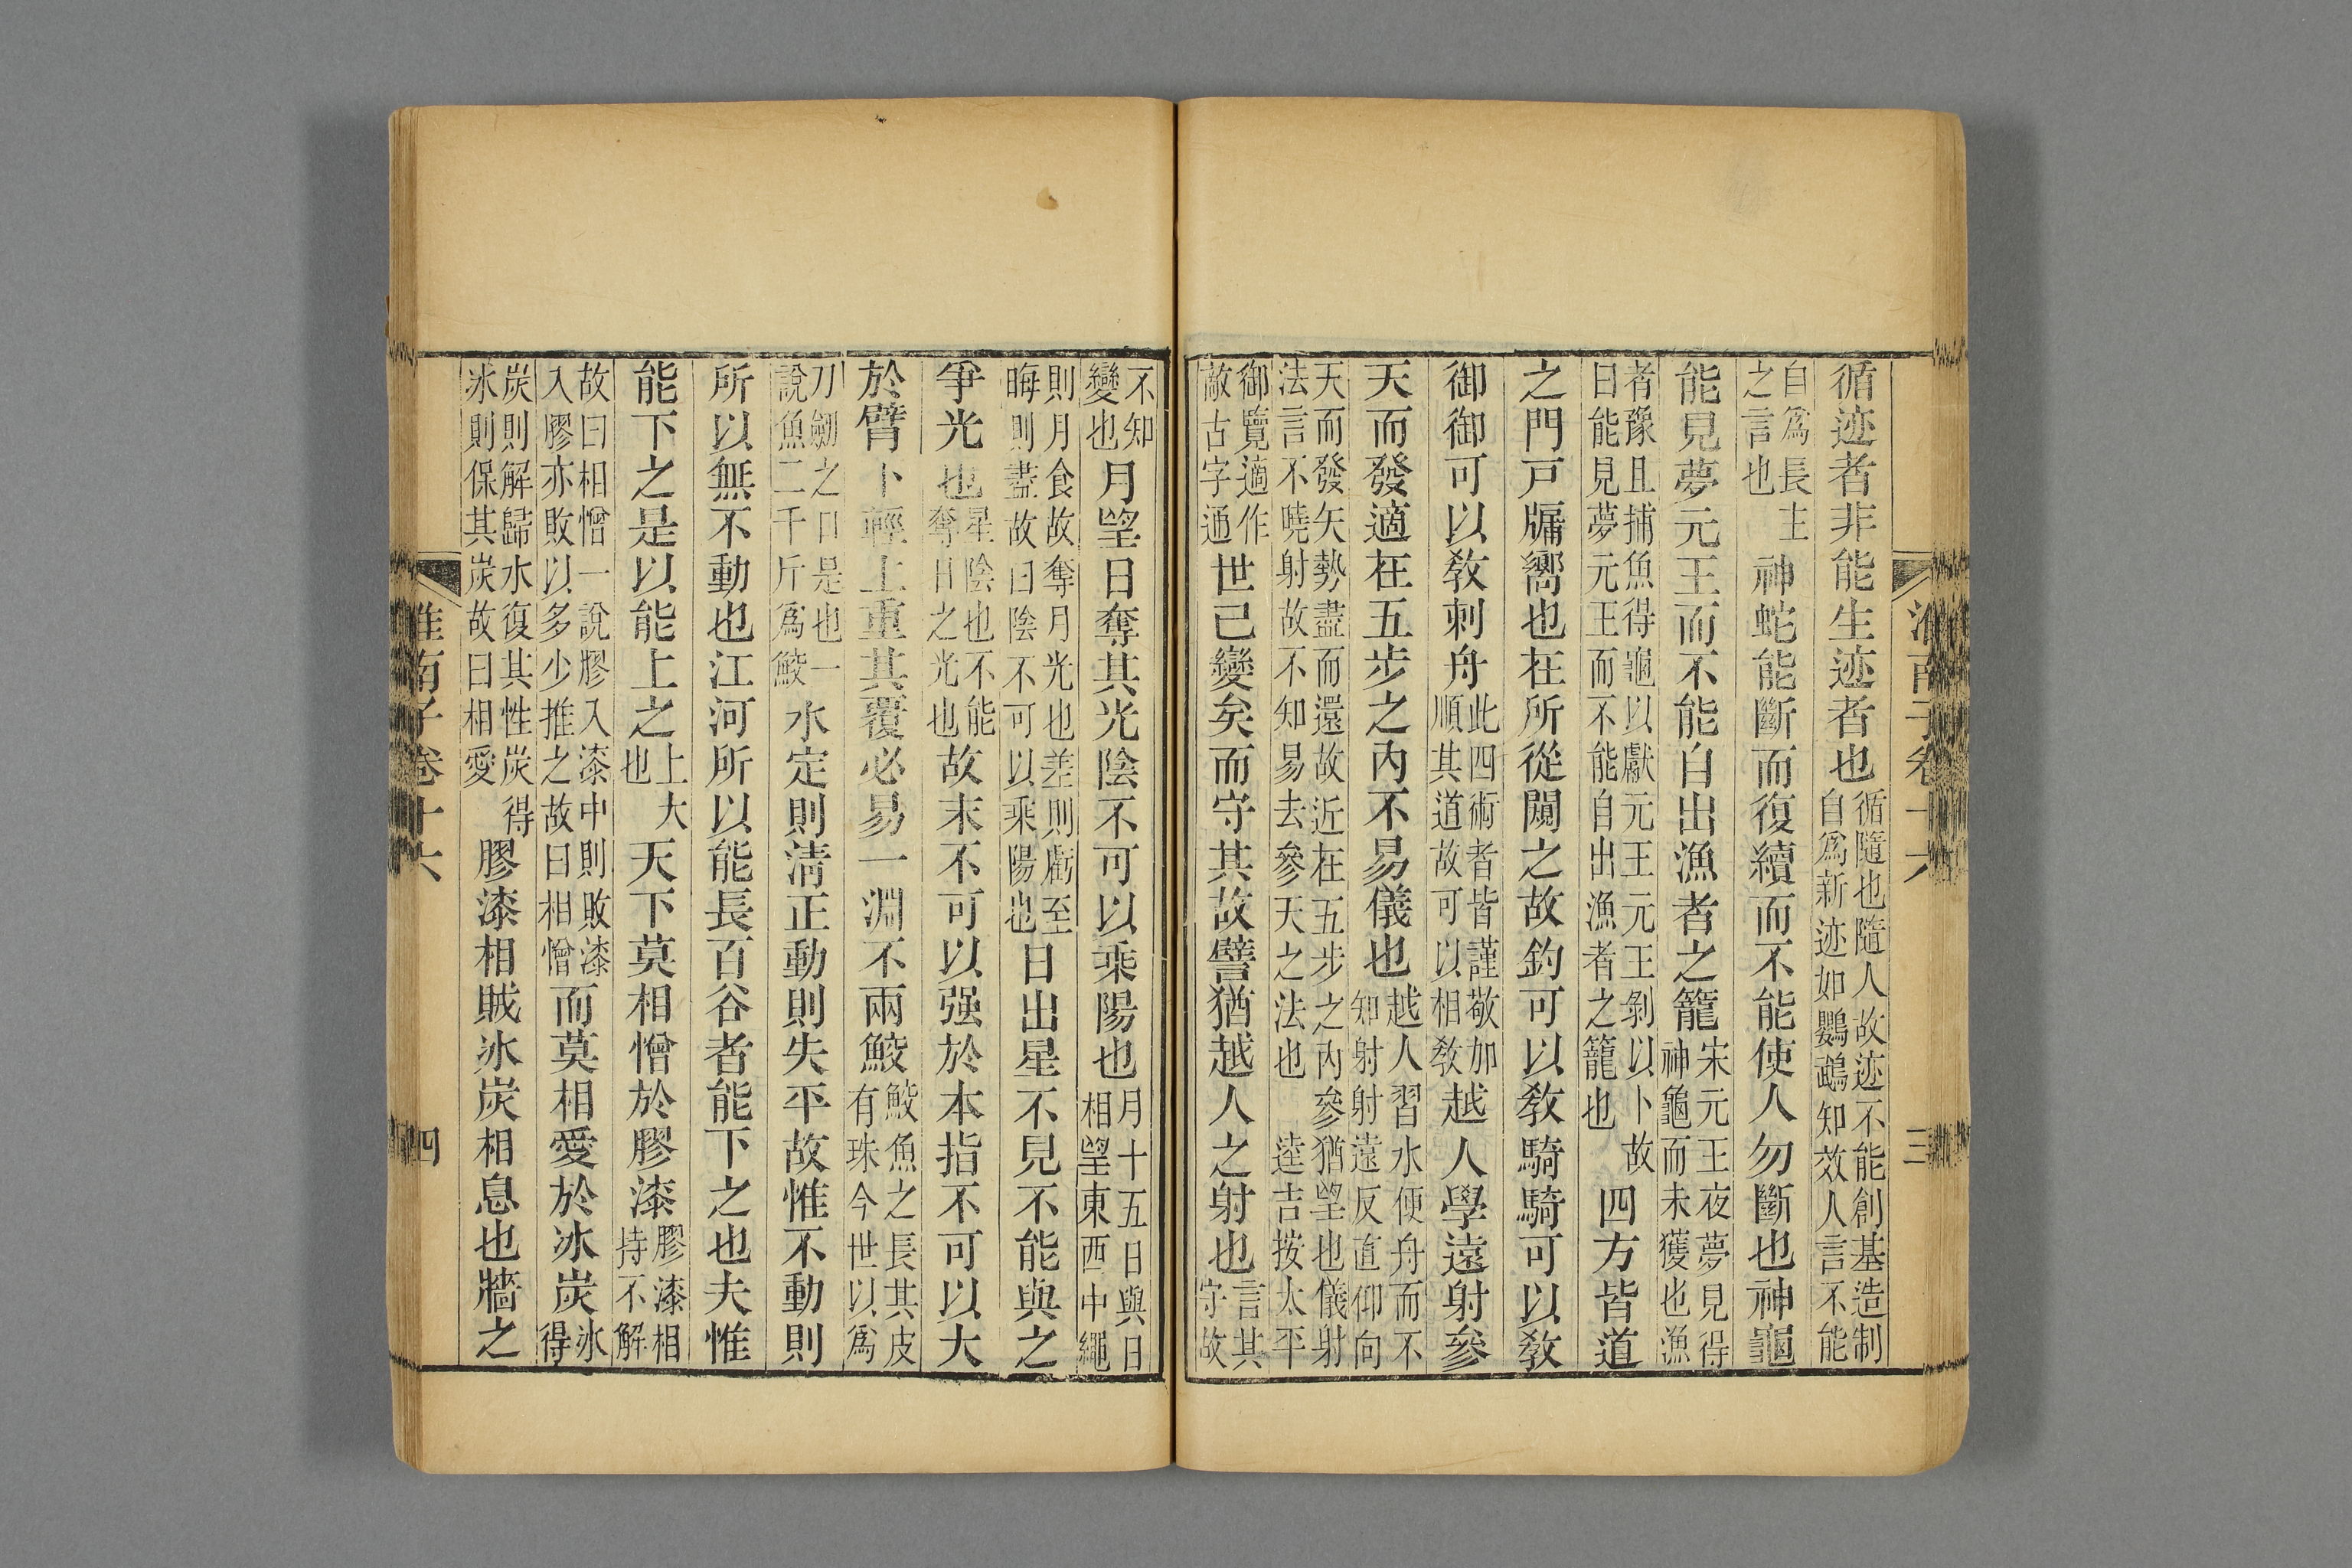 淮南子卷十六　三
循迹者非能生迹者也循隨也隨人故迹不能創基造制自爲新迹如鸚鵡知效人言不能
自爲長主之言也神蛇能斷而復續而不能使人勿斷也神龜
能見夢元王而不能自出漁者之籠宋元王夜夢見得神龜而未獲也漁
者豫且捕魚得龜以獻元王元王剝以卜故曰能見夢元王而不能自出漁者之籠也四方皆道
之門戸牖嚮也在所從闚之故釣可以敎騎騎可以敎
御御可以敎刺舟此四術者皆謹敬加順其道故可以相敎越人學遠射參
天而發適在五步之內不易儀也越人習水便舟而不知射射遠反直仰向
天而發矢勢盡而還故近在五步之內參猶望也儀射法言不曉射故不知易去參天之法也逵吉按太平
御覽適作敵古字通世已變矣而守其故譬猶越人之射也言其守故
不知變也月望日奪其光陰不可以乘陽也月十五日與日相望東西中繩
則月食故奪月光也差則虧至晦則盡故曰陰不可以乘陽也日出星不見不能與之
爭光也星陰也不能奪日之光也故末不可以强於本指不可以大
於臂下輕上重其覆必易一淵不兩鮫鮫魚之長其皮有珠今世以爲
刀劒之口是也一說魚二千斤爲鮫水定則淸正動則失平故惟不動則
所以無不動也江河所以能長百谷者能下之也夫惟
能下之是以能上之上大也天下莫相憎於膠漆膠漆相持不解
故曰相憎一說膠入漆中則敗漆入膠亦敗以多少推之故曰相憎而莫相愛於冰炭冰得
炭則解歸水復其性炭得冰則保其炭故曰相愛膠漆相賊冰炭相息也牆之
淮南子卷十六　四